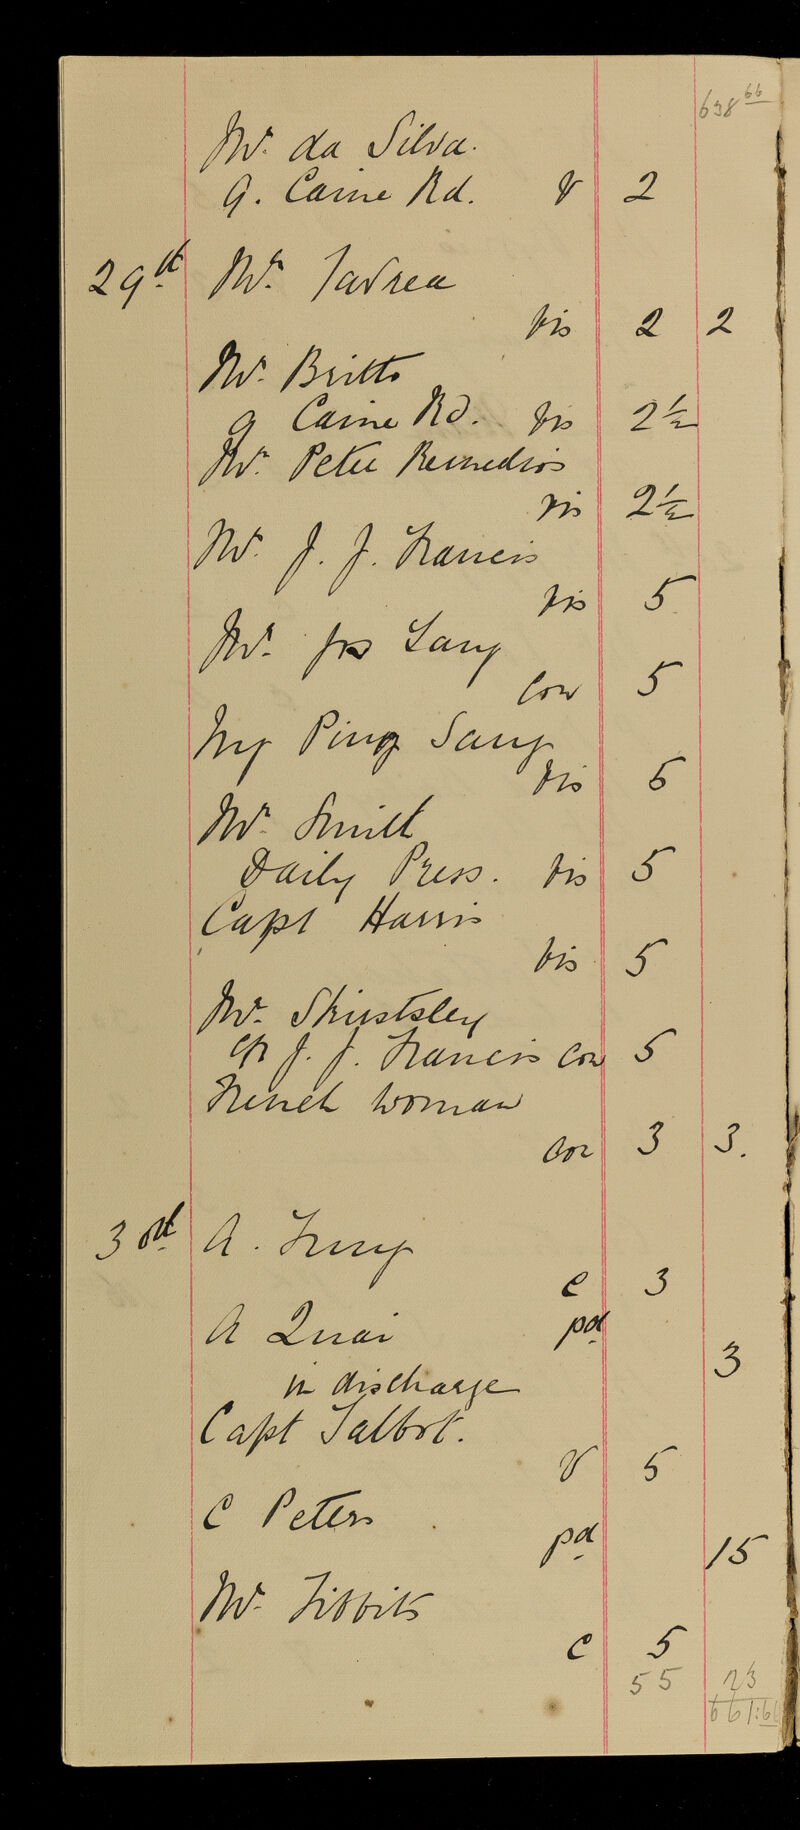 638 66
Mr. da Silva.
9. Caine Rd. V 2
29th Mr.
vis 2 2
Mr. Britto
9 Caine Rd. vis 2½
Mr. Peter Remedios
vis 2½
Mr. J. J. Francis
vis 5
Mr. Jas Lang
con 5
Ng Ping Sang
vis 5
Mr. Smith
Daily Press. vis 5
Capt Harris
vis 5
Mr.
J. J. Francis con 5
French woman
con 3 3.
30th A. Fung
c 3
A Quai pd
3
in discharge
Capt Talbot.
V 5
C Peters
pd 15
Mr. Tibbits
c 5
55 23
661:66